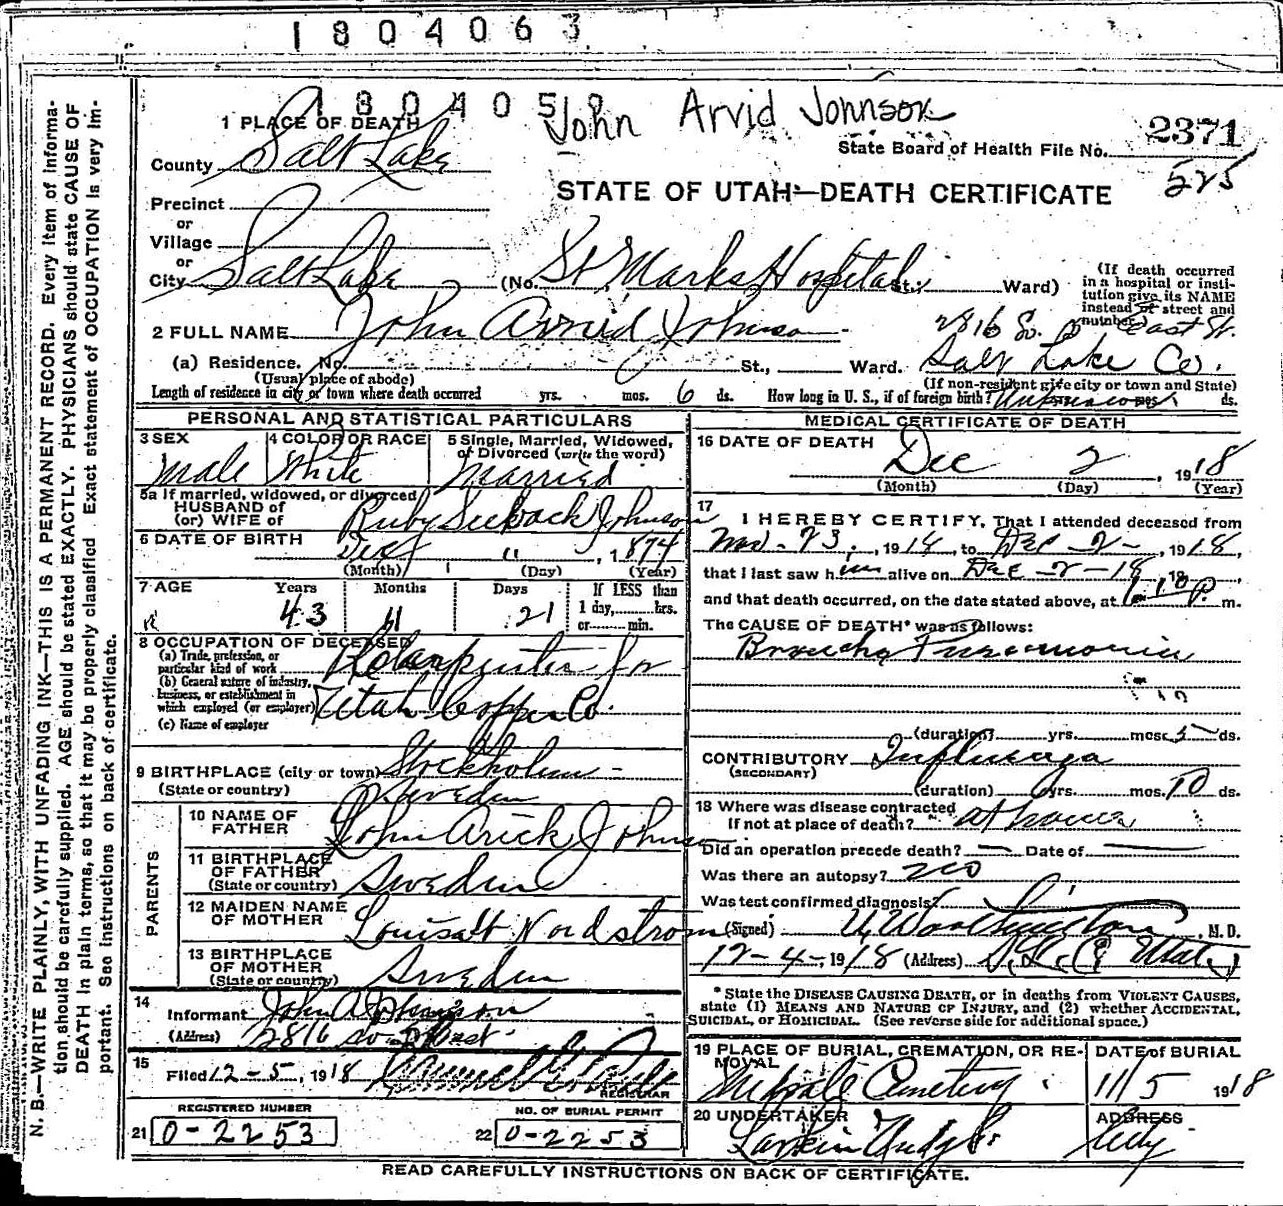 1804063
180405
John Arvid Johnson
1 PLACE OF DEATH
County Salt Lake
State Board of Health File No. 2371
525
STATE OF UTAH—DEATH CERTIFICATE
Precinct
or
Village
or
City Salt Lake (No. St. Marks Hospital St.; Ward)
(If death occurred in a hospital or insti-
tution give its NAME
instead of street and
number.)
2 FULL NAME John Arvid Johnson
2816 So. East St.
(a) Residence. No. St., Ward. Salt Lake Co.
(Usual place of abode) (If non-resident give city or town and State)
Length of residence in city or town where death occurred yrs. mos. 6 ds. How long in U. S., if of foreign birth? Unknown mos. ds.
PERSONAL AND STATISTICAL PARTICULARS
3 SEX Male
4 COLOR OR RACE White
5 Single, Married, Widowed,
or Divorced (write the word)
Married
5a If married, widowed, or divorced
HUSBAND of
(or) WIFE of Ruby Johnson
6 DATE OF BIRTH 11, 1874
(Month) (Day) (Year)
7 AGE Years Months Days If LESS than
1 day, hrs.
or min.
43 11 21
8 OCCUPATION OF DECEASED
(a) Trade, profession, or
particular kind of work Carpenter for
(b) General nature of industry,
business, or establishment in
which employed (or employer) Utah Copper Co.
(c) Name of employer
9 BIRTHPLACE (city or town) Stockholm -
(State or country) Sweden
PARENTS
10 NAME OF
FATHER John Arick Johnson
11 BIRTHPLACE
OF FATHER
(State or country) Sweden
12 MAIDEN NAME
OF MOTHER Nordstrom
13 BIRTHPLACE
OF MOTHER
(State or country) Sweden
14
Informant John A Johnson
(Address) 2816 So East
15
Filed 12-5, 1918
REGISTRAR
REGISTERED NUMBER NO. OF BURIAL PERMIT
21 0-2253 22 0-2253
MEDICAL CERTIFICATE OF DEATH
16 DATE OF DEATH
Dec 2, 1918
(Month) (Day) (Year)
17
I HEREBY CERTIFY, That I attended deceased from
Nov. 23, 1918, to Dec - 2 -, 1918,
that I last saw him alive on Dec - 2 - 18, 19
and that death occurred, on the date stated above, at 1.10 P. m.
The CAUSE OF DEATH* was as follows:
Broncho Pneumonia
(duration) yrs. mos. 5 ds.
CONTRIBUTORY Influenza
(SECONDARY)
(duration) yrs. mos. 10 ds.
18 Where was disease contracted
If not at place of death? at home
Did an operation precede death? — Date of —
Was there an autopsy? no
Was test confirmed diagnosis?
(Signed) , M. D.
12-4-, 1918 (Address) S. L. C. Utah
* State the DISEASE CAUSING DEATH, or in deaths from VIOLENT CAUSES,
state (1) MEANS AND NATURE OF INJURY, and (2) whether ACCIDENTAL,
SUICIDAL, or HOMICIDAL. (See reverse side for additional space.)
19 PLACE OF BURIAL, CREMATION, OR RE-
MOVAL
Cemetery
DATE of BURIAL
11/5 1918
20 UNDERTAKER
ADDRESS
City
READ CAREFULLY INSTRUCTIONS ON BACK OF CERTIFICATE.
N. B.—WRITE PLAINLY, WITH UNFADING INK—THIS IS A PERMANENT RECORD. Every item of informa-
tion should be carefully supplied. AGE should be stated EXACTLY. PHYSICIANS should state CAUSE OF
DEATH in plain terms, so that it may be properly classified. Exact statement of OCCUPATION is very im-
portant. See instructions on back of certificate.